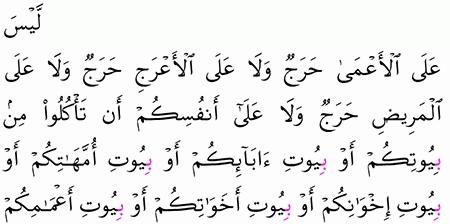 لَّيْسَ
عَلَى ٱلْأَعْمَىٰ حَرَجٌ وَلَا عَلَى ٱلْأَعْرَجِ حَرَجٌ وَلَا عَلَى
ٱلْمَرِيضِ حَرَجٌ وَلَا عَلَىٰٓ أَنفُسِكُمْ أَن تَأْكُلُوا۟ مِنۢ
بِيُوتِكُمْ أَوْ بِيُوتِ ءَابَآئِكُمْ أَوْ بِيُوتِ أُمَّهَـٰتِكُمْ أَوْ
بِيُوتِ إِخْوَٰنِكُمْ أَوْ بِيُوتِ أَخَوَٰتِكُمْ أَوْ بِيُوتِ أَعْمَـٰمِكُمْ